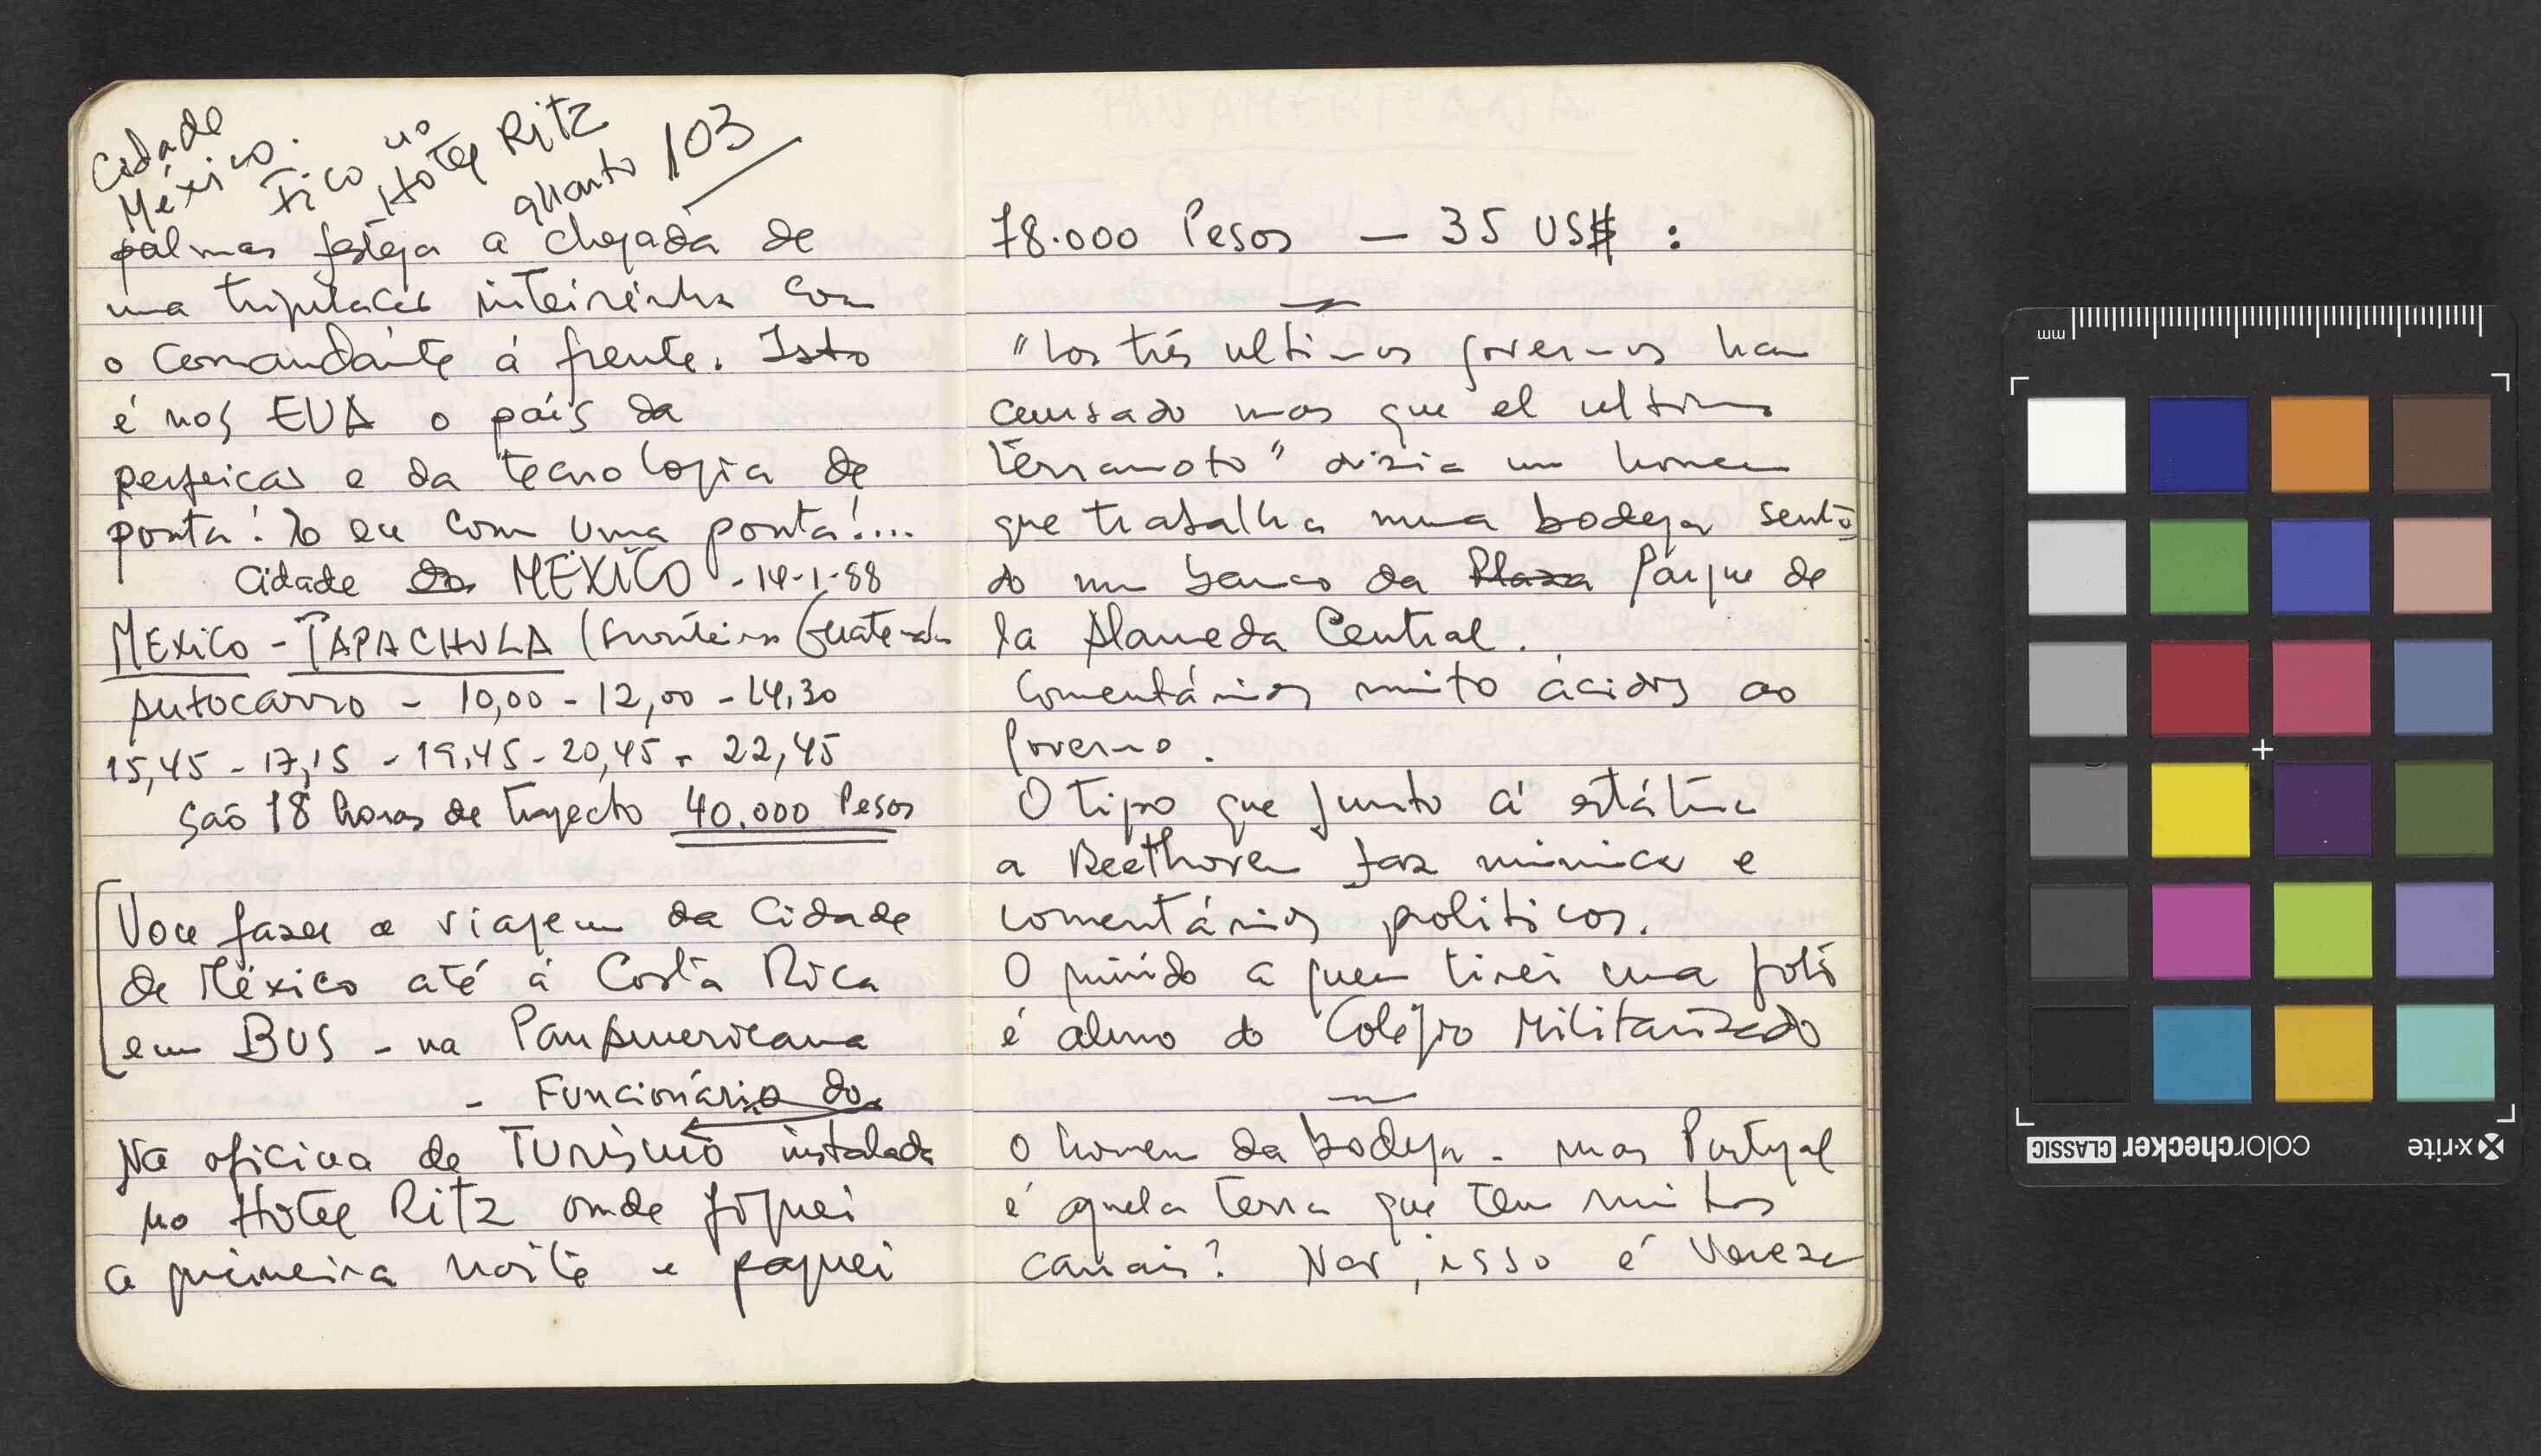 Cidade
México.
Fico no
Hotel Ritz
quarto 103
palmas festeja a chegada de
uma tripulacao inteirinha com
o comandante á frente. Isto
é nos EUA o país da
perfeicao e da tecnologia de
ponta! eu com uma ponta!...
Cidade do MÉXICO - 14-1-88
MEXICO - TAPACHULA (Fronteira Guatemala
Autocarro - 10,00 - 12,00 - 14,30
15,45 - 17,15 - 19,45 - 20,45 - 22,45
São 18 horas de trajecto 40.000 Pesos
Vou fazer a viagem da Cidade
de México até á Costa Rica
em BUS - na PanAmericana
- Funcionário do
Na oficina de TURISMO instalada
no Hotel Ritz onde fiquei
a primeira noite e paguei
78.000 Pesos — 35 US$ :
"Los trés ultimos governos han
causado mas que el ultimo
terramoto" dizia um homem
que trabalha numa bodega senta
do num banco da Plaza Parque de
la Alameda Central.
Comentários muito ácidos ao
governo.
O tipo que junto á estátua
a Beethoven faz mimica e
comentários politicos.
O miúdo a quem tirei uma foto
é aluno do Colégio Militarizado
O homem da bodega - mas Portugal
é aquela terra que tem muitos
canais? Nao, isso é Veneza
mm
x-rite
colorchecker CLASSIC